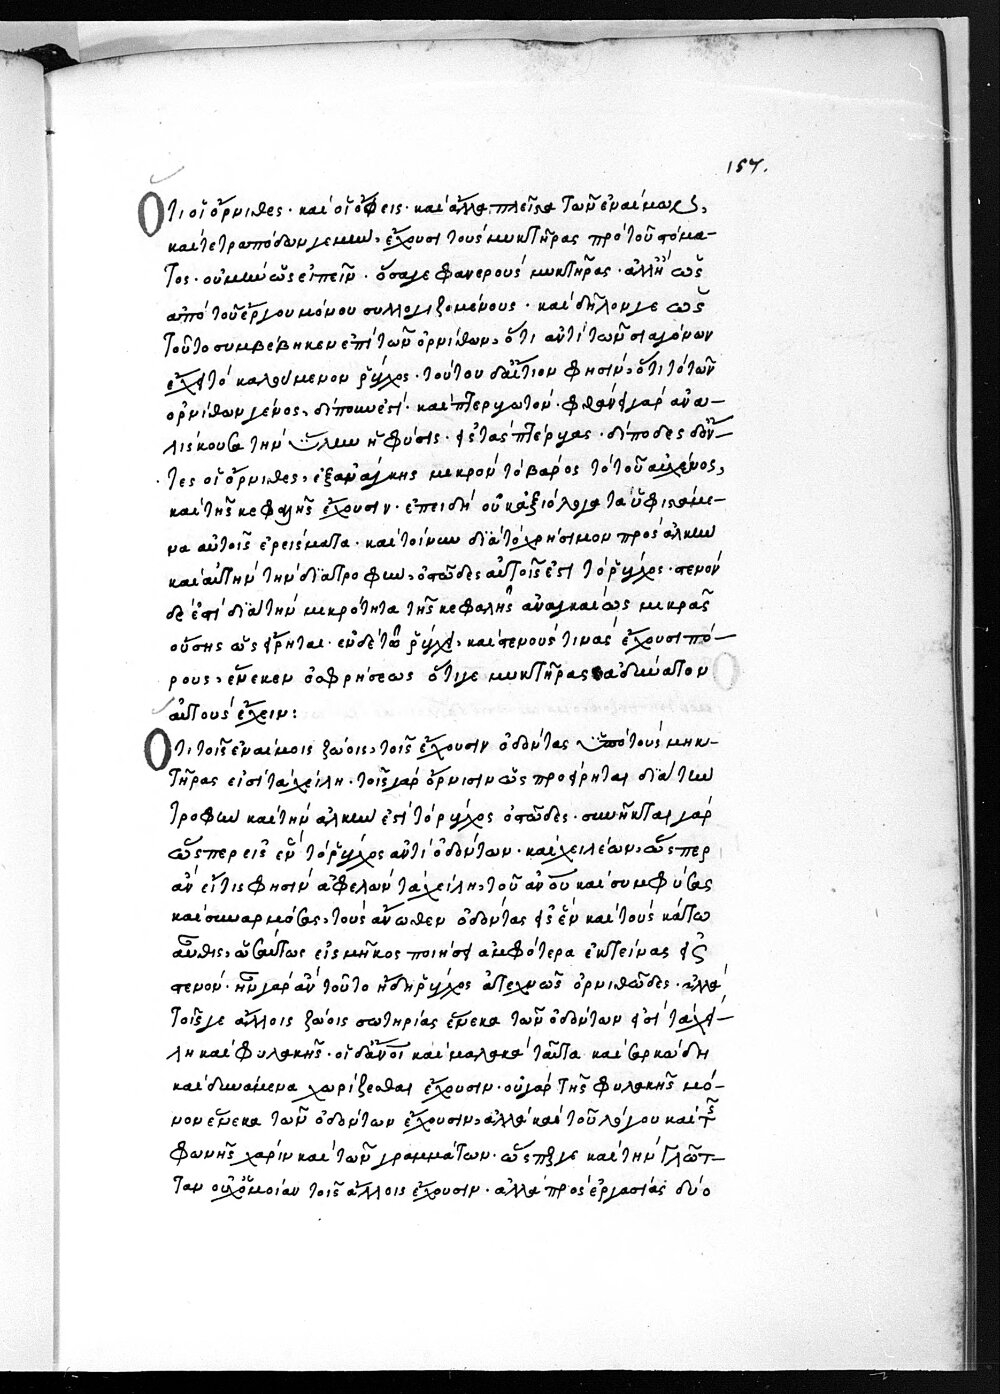 157.
Ὅτι οἱ ὄρνιθες· καὶ οἱ ὄφεις· καὶ ἄλλα πλεῖστα τῶν ἐναίμων,
καὶ τετραπόδων γε μὴν, ἔχουσι τοὺς μυκτῆρας πρὸ τοῦ στόμα-
τος· οὐ μὴν ὡς εἰπεῖν· ὅσα γε φανεροὺς μυκτῆρας· ἀλλ' ὡς
ἀπὸ τοῦ ἔργου μόνου συλλογιζομένους· καὶ δῆλόν γε ὡς
τοῦτο συμβέβηκεν ἐπὶ τῶν ὀρνίθων, ὅτι ἀντὶ τῶν σιαγόνων
ἔχει τὸ καλούμενον ῥύγχος· τούτου δ' αἴτιον φησὶν, ὅτι τὸ τῶν
ὀρνίθων γένος, δίπουν ἐστί· καὶ πτερυγωτόν· φθάνει γὰρ ἀνα-
λίσκουσα τὴν ὕλην ἡ φύσις· εἰς τὰς πτέρυγας· δίποδες δ' ὄν-
τες οἱ ὄρνιθες, ἐξ ἀνάγκης μικρὸν τὸ βάρος τὸ τοῦ αὐχένος,
καὶ τῆς κεφαλῆς ἔχουσιν· ἐπειδὴ οὐκ ἀξιόλογα τὰ ὑφιστάμε-
να αὐτοῖς ἐρείσματα· καὶ τοίνυν διὰ τὸ χρήσιμον πρὸς ἀλκὴν
καὶ αὐτὴν τὴν διατροφὴν, ὀστῶδες αὐτοῖς ἐστὶ τὸ ῥύγχος· στενὸν
δέ ἐστι διὰ τὴν μικρότητα τῆς κεφαλῆς ἀναγκαίως μικρᾶς
οὔσης ὡς εἴρηται· ἐν δὲ τῶ ῥύγχει, καὶ στενούς τινας ἔχουσι πό-
ρους, ἕνεκεν ὀσφρήσεως ὅτι γε μυκτῆρας ἀδύνατον
αὐτοὺς ἔχειν:
Ὅτι τοῖς ἐναίμοις ζώοις, τοῖς ἔχουσιν ὀδόντας ὑπὸ τοὺς μυκ-
τῆρας εἰσὶ τὰ χείλη· τοῖς γὰρ ὄρνισιν ὡς προείρηται διὰ τὴν
τροφὴν καὶ τὴν ἀλκὴν ἐστὶ τὸ ῥύγχος ὀστῶδες· συνῆκται γὰρ
ὥσπερ εἰς ἓν τὸ ῥύγχος ἀντὶ ὀδόντων· καὶ χειλέων, ὥσπερ
ἂν εἴ τις φησὶν ἀφελὼν τὰ χείλη, τοῦ ἀνου καὶ συμφύσας
καὶ συναρμόσας, τοὺς ἄνωθεν ὀδόντας εἰς ἓν καὶ τοὺς κάτω
αὖθις, ὡσαύτως εἰς μῆκος ποιήσει ἀμφότερα ἐκτείνας εἰς
στενόν· ἦν γὰρ ἂν τοῦτο ἤδη ῥύγχος ἀτεχνῶς ὀρνιθῶδες· ἀλλὰ
τοῖς γε ἄλλοις ζώοις σωτηρίας ἕνεκα τῶν ὀδόντων εἰσὶ τὰ χεί-
λη καὶ φυλακῆς· οἱ δ' ἄνοι καὶ μαλακὰ ταῦτα καὶ σαρκώδη
καὶ δυνάμενα χωρίζεσθαι ἔχουσιν· οὐ γὰρ τῆς φυλακῆς μό-
νον ἕνεκα τῶν ὀδόντων ἔχουσιν, ἀλλὰ καὶ τοῦ λόγου καὶ τῆς
φωνῆς χάριν καὶ τῶν γραμμάτων· ὥσπερ γε καὶ τὴν γλῶτ-
ταν οὐχ ὁμοίαν τοῖς ἄλλοις ἔχουσιν· ἀλλὰ πρὸς ἐργασίας δύο